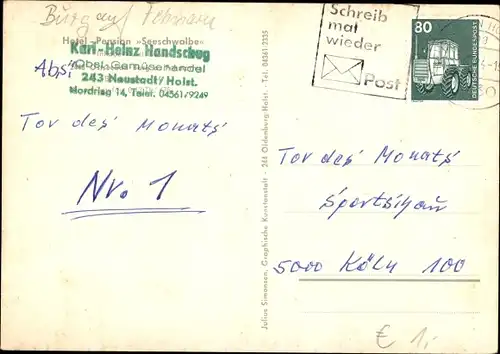 Burg auf Fehmarn
Hotel-Pension »Seeschwalbe«
Karl-Heinz Handschug
Obst-Gemüsehandel
Abs:
243 Neustadt/Holst.
Nordring 14, Telef. 04561/9249
Tor des Monats
Nr. 1
Julius Simonsen, Graphische Kunstanstalt - 244 Oldenburg/Holst. / Tel. 04361 2335
Schreib
mal
wieder
Post
80
DEUTSCHE BUNDESPOST
Tor des Monats
Sportschau
5000 Köln 100
€ 1,-